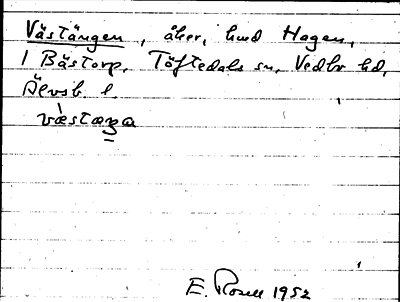 Västängen, åker, hmd Hagen,
1 Båstorp, Töftedals sn, Vedbo hd,
Älvsb. l.
væ̀staŋa
E. Rosell 1952